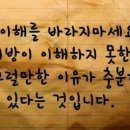 이해를 바라지마세요
방이 이해하지 못한
그럴만한 이유가 충분
있다는 것입니다.